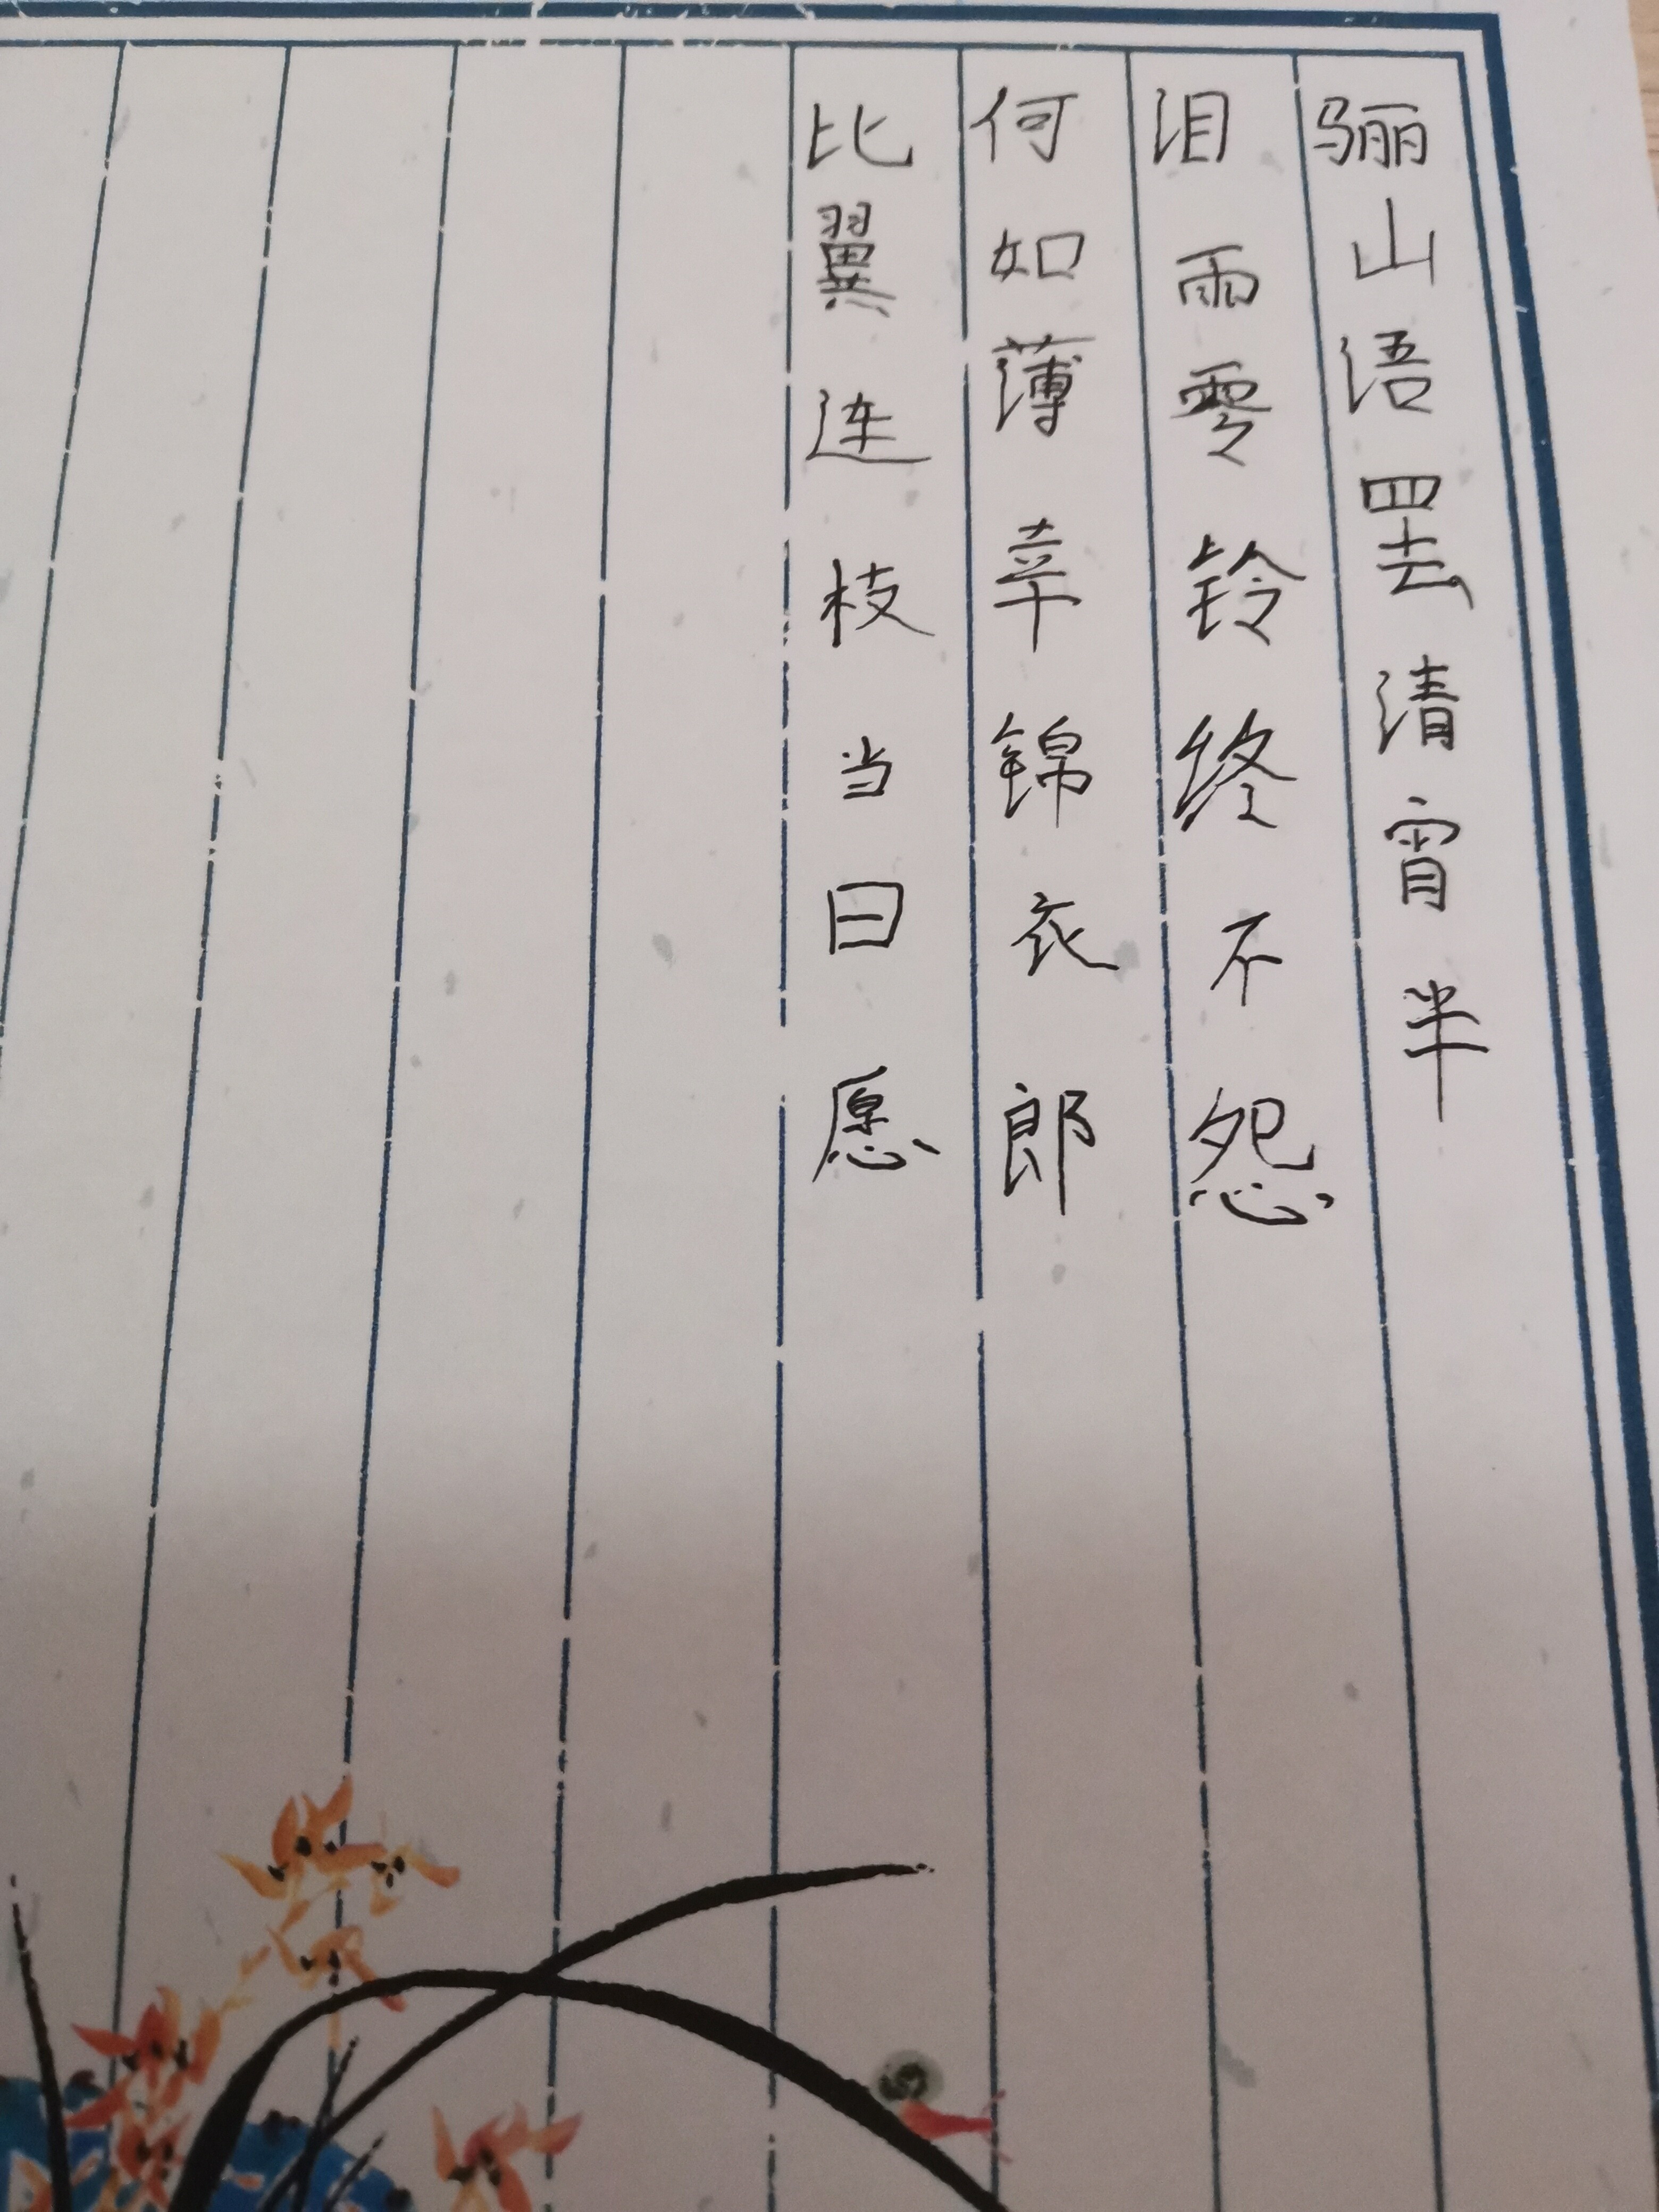 骊山语罢清宵半
泪雨零铃终不怨
何如薄幸锦衣郎
比翼连枝当日愿